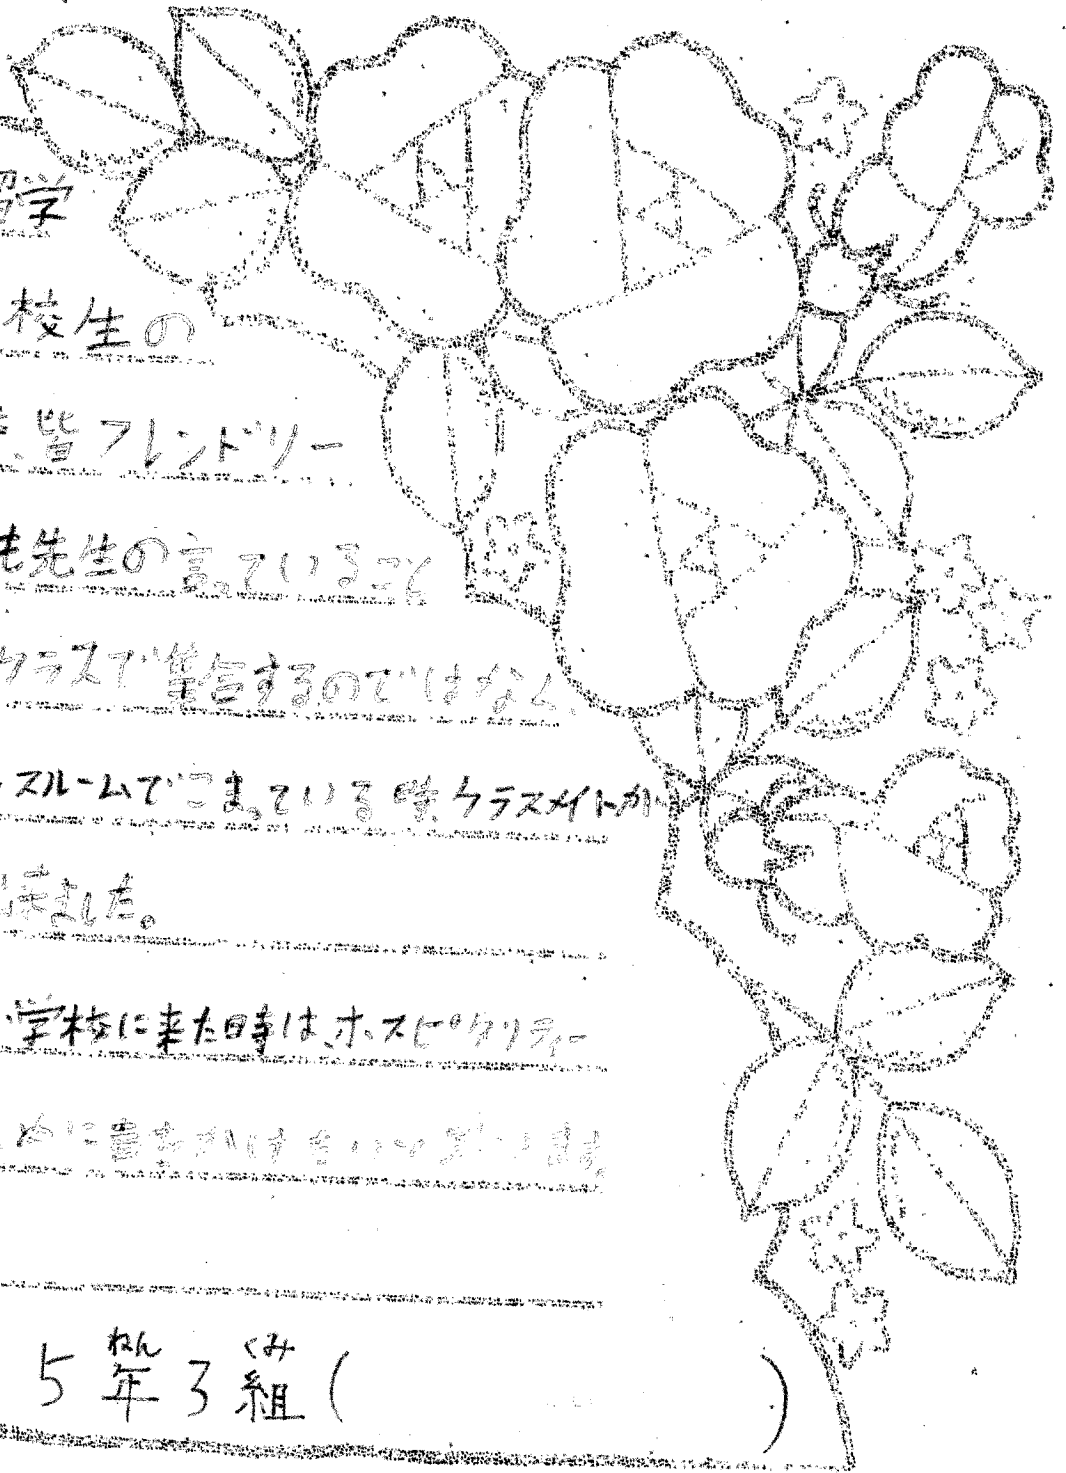 留学
校生の
皆フレンドリー
も先生の言っていること
クラスで集合するのではなく、
スルームでこまっている時、クラスメイトが
来ました。
学校に来た時は、ホスピタリティー
めに
ねん くみ
5年3組( )